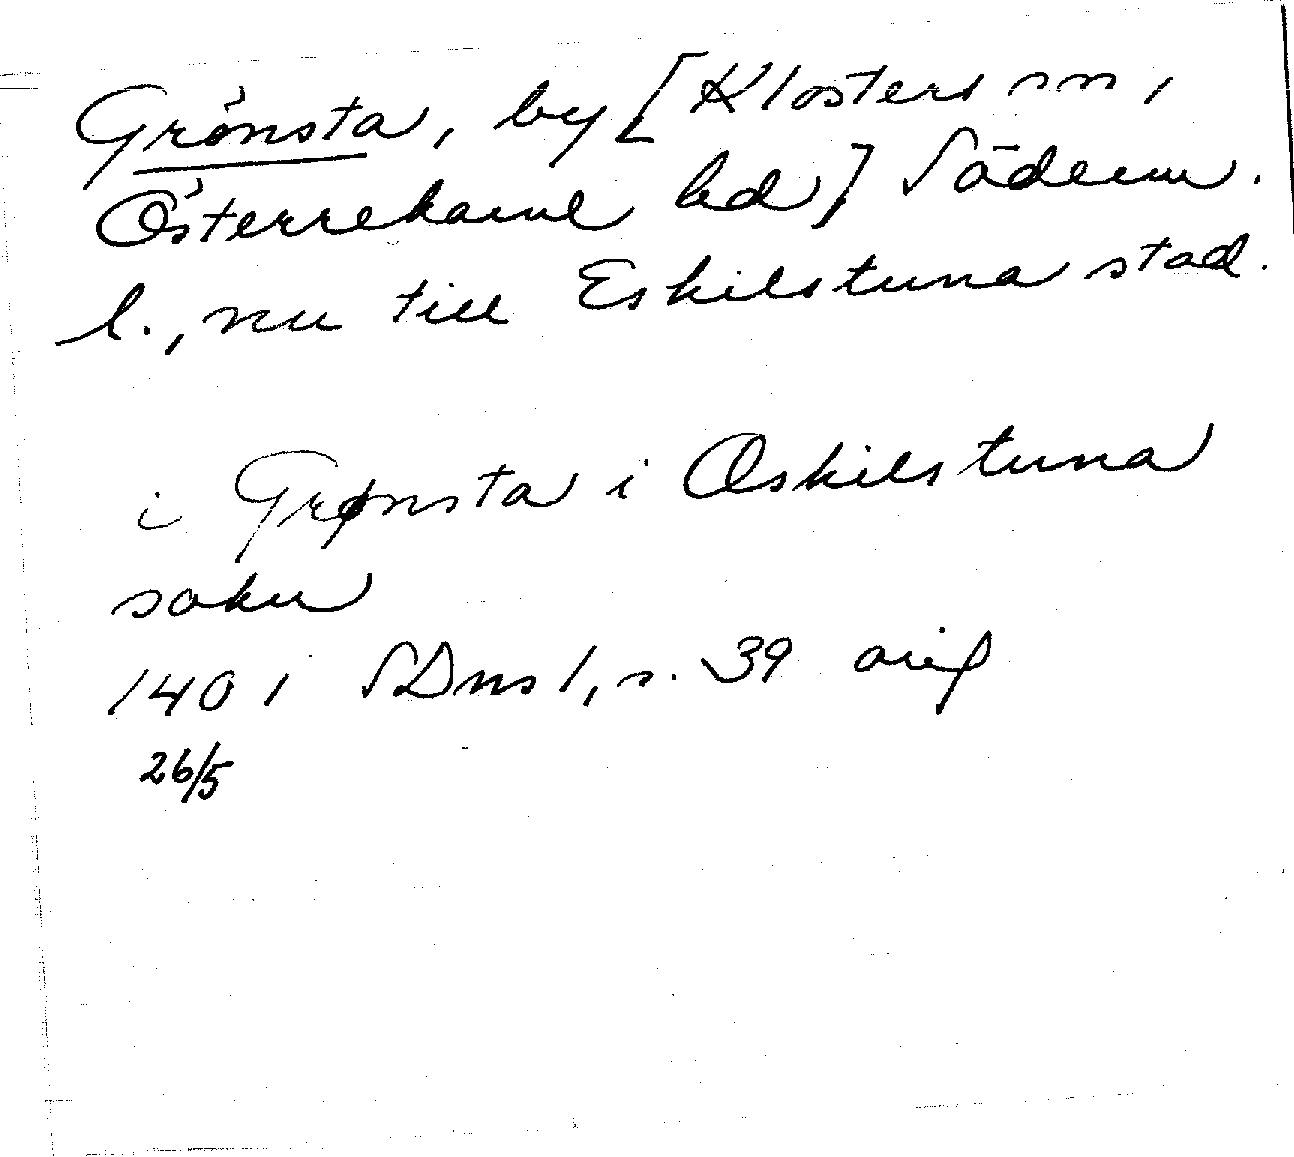 Grönsta, by [Klosters sn,
Österrekarne hd] Söderm.
l., nu till Eskilstuna stad.
i Grønsta i Œskilstuna
sokn
1401 SDns 1, s. 39 orig
26/5